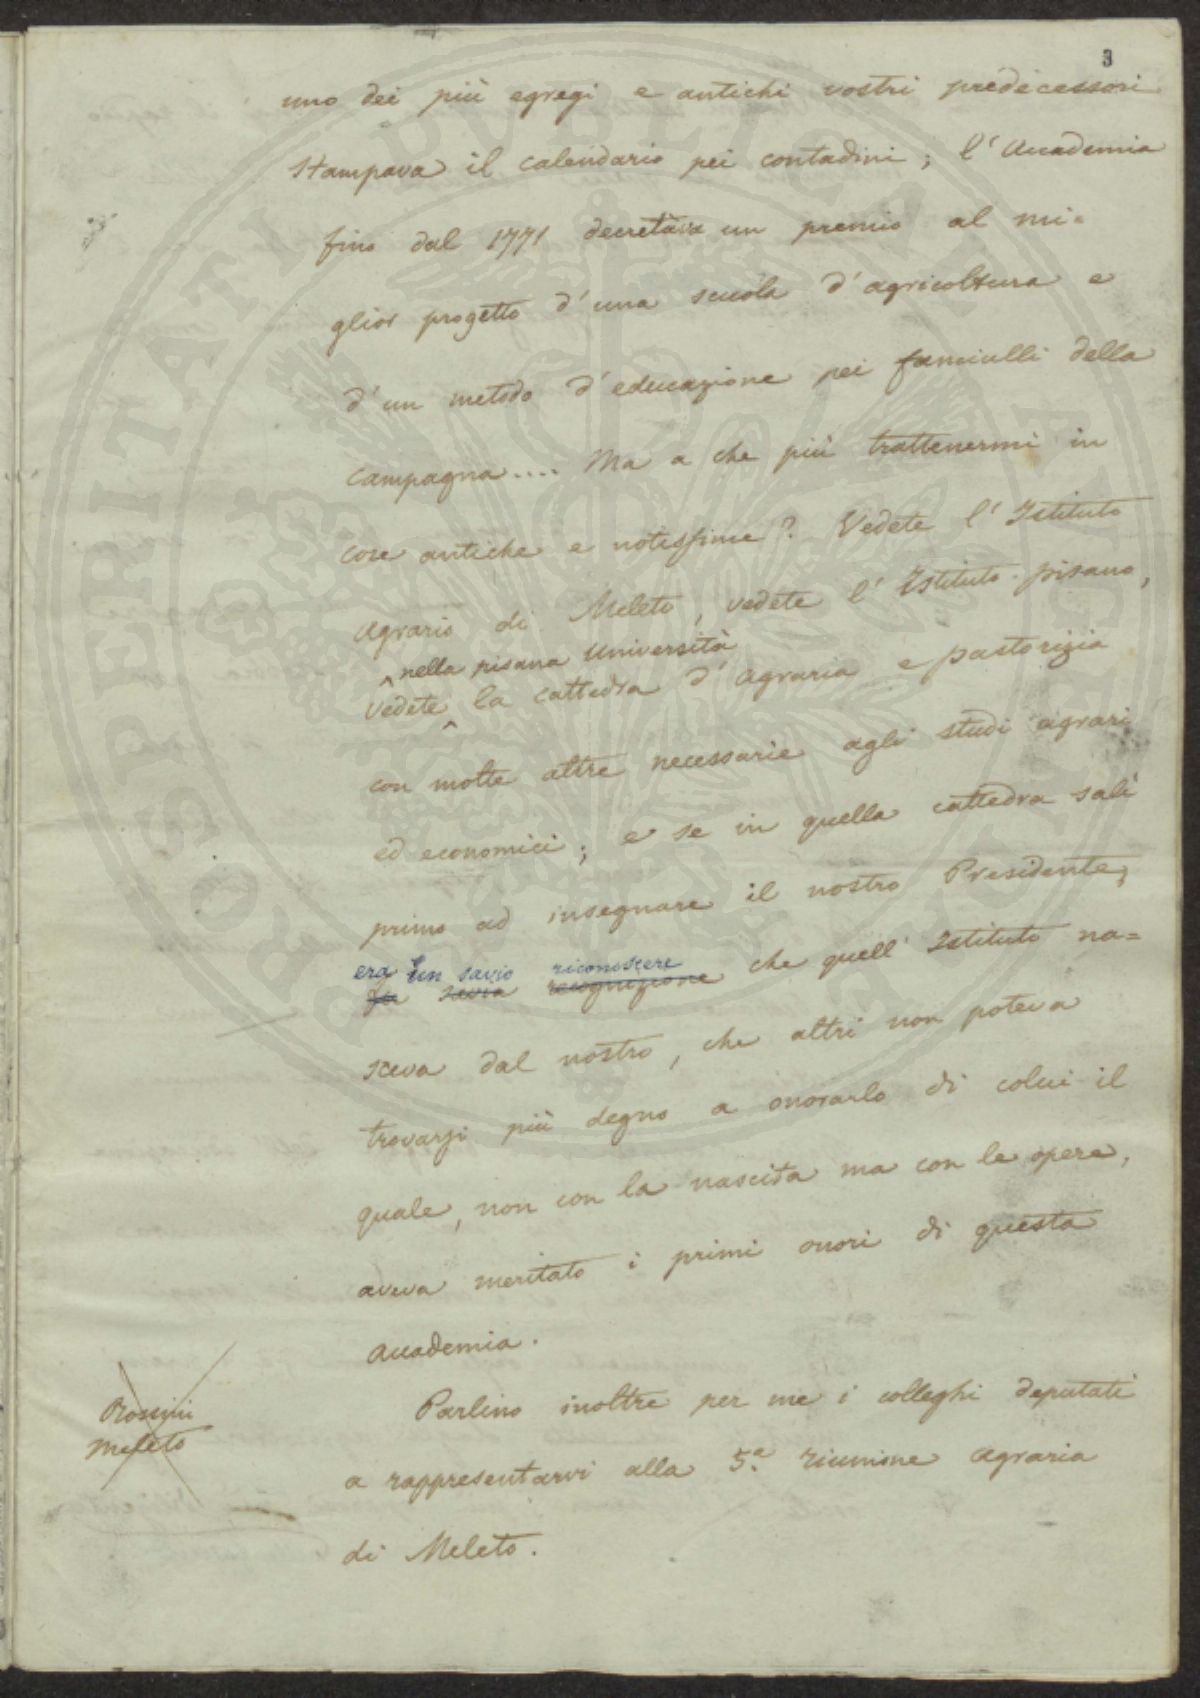 3
uno dei più egregi e antichi vostri predecessori
stampava il calendario pei contadini; l'Accademia
fino dal 1771 decretava un premio al mi=
glior progetto d'una scuola d'agricoltura e
d'un metodo d'educazione pei fanciulli della
campagna.... Ma a che più trattenermi in
cose antiche e notissime? Vedete l'Istituto
agrario di Meleto, vedete l'Istituto pisano,
nella pisana Università
vedete la cattedra d'agraria e pastorizia
con molte altre necessarie agli studi agrari
ed economici; e se in quella cattedra salì
primo ad insegnare il nostro Presidente,
era un savio riconoscere
fu savia recognizione che quell'Istituto na=
sceva dal nostro, che altri non poteva
trovarsi più degno a onorarlo di colui il
quale, non con la nascita ma con le opere,
aveva meritato i primi onori di questa
accademia.
Rossini
Meleto
Parlino inoltre per me i colleghi deputati
a rappresentarvi alla 5.a riunione agraria
di Meleto.
PROSPERITATI PUBLICAE AUGENDAE